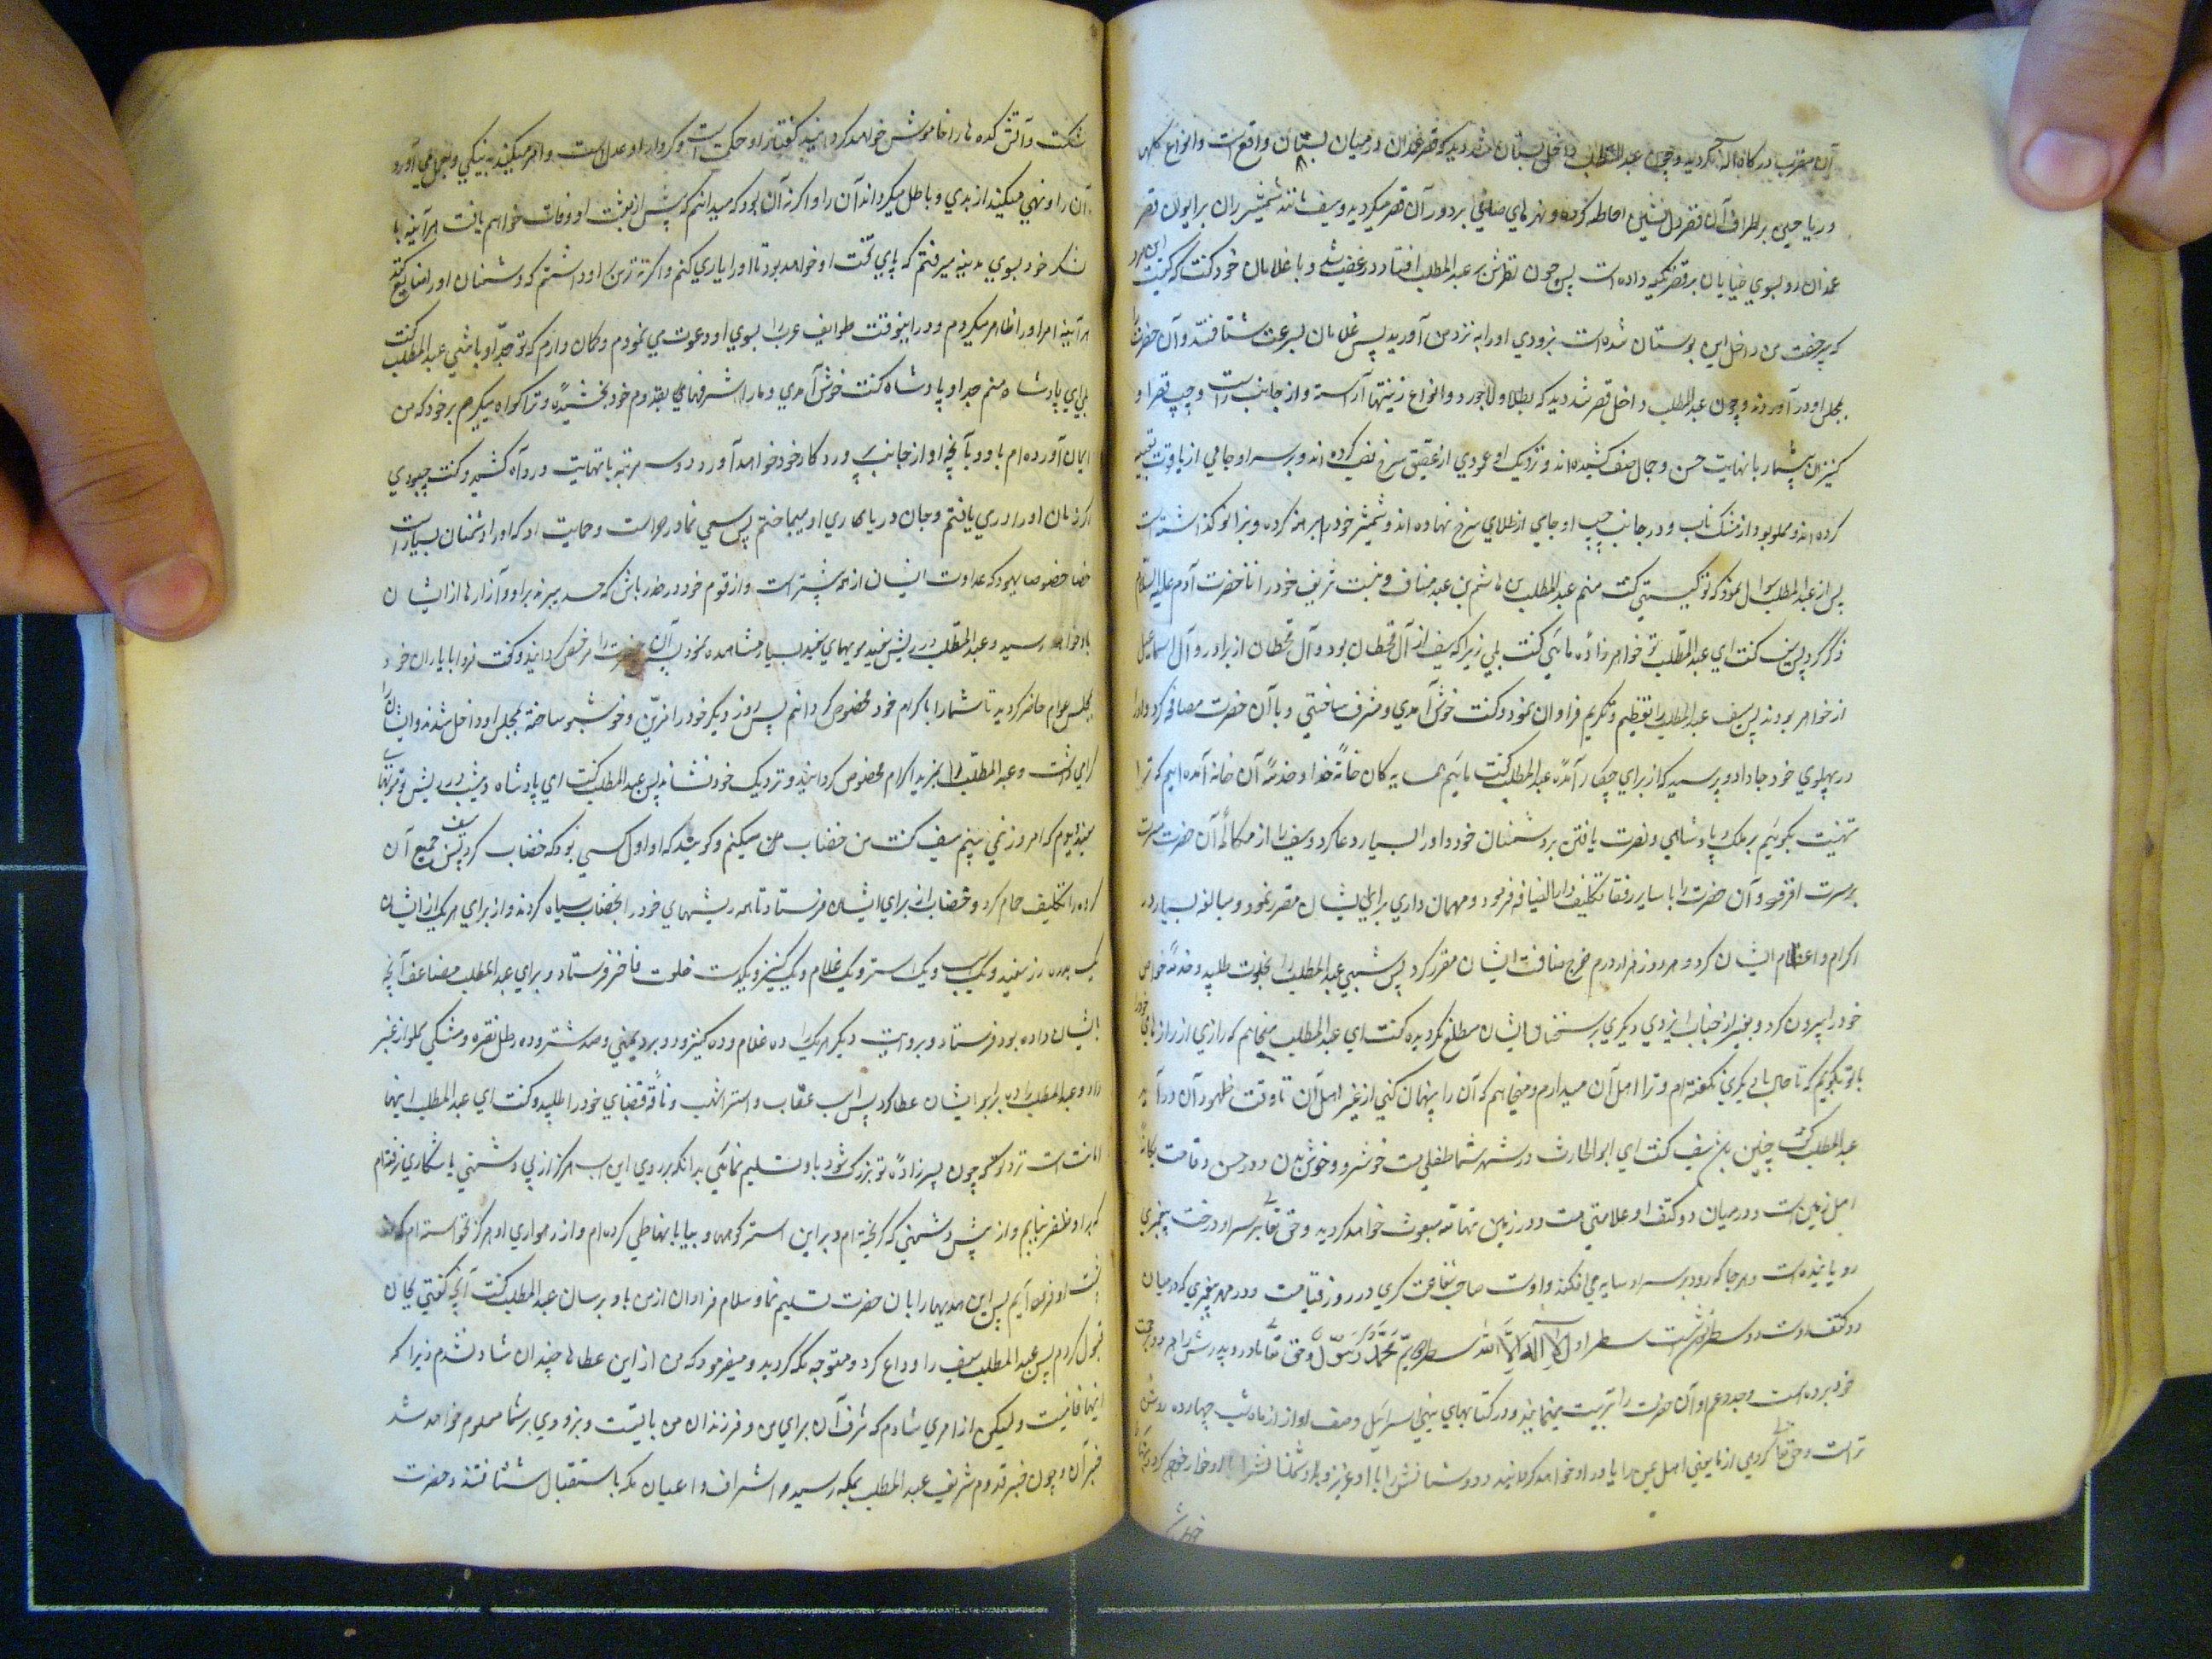 آن مقرب درگاه اله نگردید و چون عبدالمطلب داخل بستان شد دید که قصر غمدان در میان بستان واقع است و انواع گلها
و ریاحین بر اطراف آن قصر دل نشین احاطه کرده و نهرهای صافی بر دور آن قصر میگردید و سیف مانند شمشیر بران بر ایوان قصر
غمدان رو بسوی خیابان بر قصر تکیه داده است پس چون نظرش به عبدالمطلب افتاد در غضب شد و با غلامان خود گفت که کیست این مرد
که بی رخصت من داخل این بوستان شده است بزودی او را به نزد من آورید پس غلامان بسرعت شتافتند و آن حضرت را
بمجلس او در آوردند و چون عبدالمطلب داخل قصر شد دید که بطلا و لاجورد و انواع زینتها آراسته و از جانب راست و چپ قصر او
کنیزان بیشمار با نهایت حسن و جمال صف کشیده اند و نزدیک او عمودی از عقیق سرخ نصب کرده اند و بر سر او جامی از یاقوت تعبیه
کرده اند و مملو بود از مشک ناب و در جانب چپ او جامی از طلای سرخ نهاده اند و شمشیر خود را برهنه کرده و بزانو گذاشته است
پس از عبدالمطلب سوال نمود که تو کیستی گفت منم عبدالمطلب بن هاشم بن عبد مناف و نسبت شریف خود را تا حضرت آدم علیه السلام
ذکر کرد پس سیف گفت ای عبدالمطلب تو خواهر زاده مائی گفت بلی زیرا که سیف از آل قحطان بود و آل قحطان از برادر و آل اسماعیل
از خواهر بودند پس سیف عبدالمطلب را تعظیم و تکریم فراوان نمود و گفت خوش آمدی و مشرف ساختی و با آن حضرت مصافحه کرد و او را
در پهلوی خود جا داد و پرسید که از برای چه کار آمده عبدالمطلب گفت مائیم همسایه گان خانه خدا و خدمه آن خانه آمده ایم که ترا
تهنیت بگوئیم بر ملک و پادشاهی و نصرت یافتن بر دشمنان خود و او را بسیار دعا کرد و سیف را از مکالمه آن حضرت مسرت
بر مسرت افزود و آن حضرت را با سایر رفقا تکلیف دار الضیافه فرمود و مهمان داری برای ایشان مقرر نمود و مبالغه بسیار در
اکرام و اعظام ایشان کرد و هر روز هزار درم خرج ضیافت ایشان مقرر کرد پس شبی عبدالمطلب را بخلوت طلبید و خدمه خواص
خود را بیرون کرد و بغیر از جناب ایزدی دیگری بر سخنان ایشان مطلع نگردیده گفت ای عبدالمطلب میخواهم که رازی از رازهای خود را
با تو بگویم که تا حال با دیگری نگفته ام و ترا اهل آن میدانم و میخواهم که آن را پنهان کنی از غیر اهل آن تا وقت ظهور آن در آید
عبدالمطلب گفت چنین باشد سیف گفت ای ابو الحارث در شهر شما طفلی هست خوشرو و خوش بدن و در حسن و قامت یگانه
اهل زمین است و در میان دو کتف او علامتی هست و در زمین تهامه مبعوث خواهد گردید و حق تعالی بر سر او درخت پیغمبری
رویانیده است و هر جا که رود بر سر او سایه می افکند و اوست صاحب شفاعت کبری در روز قیامت و در مهر پیغمبری که در میان
دو کتف اوست دو سطر نوشته است سطر اول لا اله الا الله سطر دویم محمد رسول الله و حق تعالی مادر و پدرش را برحمت
خود برده است و جد و عم او آن حضرت را تربیت مینمایند و در کتابهای بنی اسرائیل وصف او از ماه شب چهارده روشن
تر است و حق تعالی گروهی از ما یعنی اهل یمن را یاور او خواهد گردانید و دوستانش را با او عزیز و دشمنانش را با او خوار خواهد کرد
شکست و آتش کده ها را خاموش خواهد کردانید گفتار او حکمت است و کردار او عدل است و امر میکند به نیکی و بعمل می آورد
آن را و نهی میکند از بدی و باطل میگرداند آن را و اگر نه آن بود که میدانم که پیش از بعثت او وفات خواهم یافت هر آینه با
لشکر خود بسوی مدینه میرفتم که پای تخت او خواهد بود تا او را یاری کنم و اگر نه ترس او داشتم که دشمنان او را ضایع کنند
هر آینه امر او را ظاهر میکردم و در اینوقت طوایف عرب را بسوی او دعوت می نمودم و گمان دارم که تو جد او باشی عبدالمطلب گفت
بلی ای پادشاه منم جد او پادشاه گفت خوش آمدی و ما را شرفهای بقدوم خود بخشیده و ترا گواه میگیرم بر خود که من
ایمان آورده ام باو و بآنچه او از جانب پروردگار خود خواهد آورد و سه مرتبه بانهایت درد آه کشید و گفت چه بودی
اگر زمان او را در می یافتم و جان در یاری او میباختم پس سعی نما در حراست و حمایت او که او را دشمنان بسیار است
خصوصا یهود که عداوت ایشان از همه بیشتر است و از قوم خود در حذر باش که حسد میبرند بر او و آزارها از ایشان
باو خواهد رسید و عبدالمطلب در ریش سفید مویهای سفید بسیار مشاهده نمود پس آن حضرت را مرخص گردانید و گفت فردا با یاران خود
بمجلس عوام حاضر گردید تا شما را باکرام خود مخصوص گردانم پس روز دیگر خود را مزین و خوشبو ساخته بمجلس او داخل شدند و ایشان را
گرامی داشت و عبدالمطلب را بمزید اکرام مخصوص گردانید و نزدیک خود نشانید پس عبدالمطلب گفت ای پادشاه دیشب در ریش تو مویهای
سفید دیدم که امروز نمی بینم سیف گفت من خضاب میکنم و گویند که او اول کسی بود که خضاب کرد پس سیف جمیع آن
گروه را تکلیف حمام کرد و خضاب از برای ایشان فرستاد تا همه ریشهای خود را بخضاب سیاه کردند و از برای هر یک از ایشان
یک بدره زر سفید و یک اسب و یک استر و یک غلام و یک کنیز و یکدست خلعت فاخر فرستاد و برای عبدالمطلب مضاعف آنچه
بایشان داده بود فرستاد و بروایت دیگر هر یک را ده غلام و ده کنیز و دو برد یمنی و صد شتر و ده رطل نقره و مشکی مملو از عنبر
داد و عبدالمطلب را ده برابر ایشان عطا کرد پس اسب عقاب و استر اشهب و ناقه قضبای خود را طلبید و گفت ای عبدالمطلب اینها
امانت است نزد تو که چون پسر زاده تو بزرگ شود باو تسلیم نمائی بدانکه بر روی این اسب هرگز از پی دشمنی یا شکاری نرفته ام
که بر او ظفر نیابم و از پیش دشمنی که گریخته ام و بر این استر کوهها و بیابانها طی کرده ام و از رهواری او هرگز نخواسته ام که از
پشت او فرود آیم پس این هدیها را بان حضرت تسلیم نما و سلام فراوان از من باو برسان عبدالمطلب گفت آنچه گفتی بجان
قبول کردم پس عبدالمطلب سیف را وداع کرد و متوجه مکه گردید و میفرمود که من از این عطاها چندان شاد نشدم زیرا که
اینها فانیست ولیکن از امری شادم که شرف آن برای من و فرزندان من باقیست و بزودی بر شما معلوم خواهد شد
خبر آن و چون خبر قدوم شریف عبدالمطلب بمکه رسید و اشراف و اعیان مکه باستقبال شتافتند و حضرت